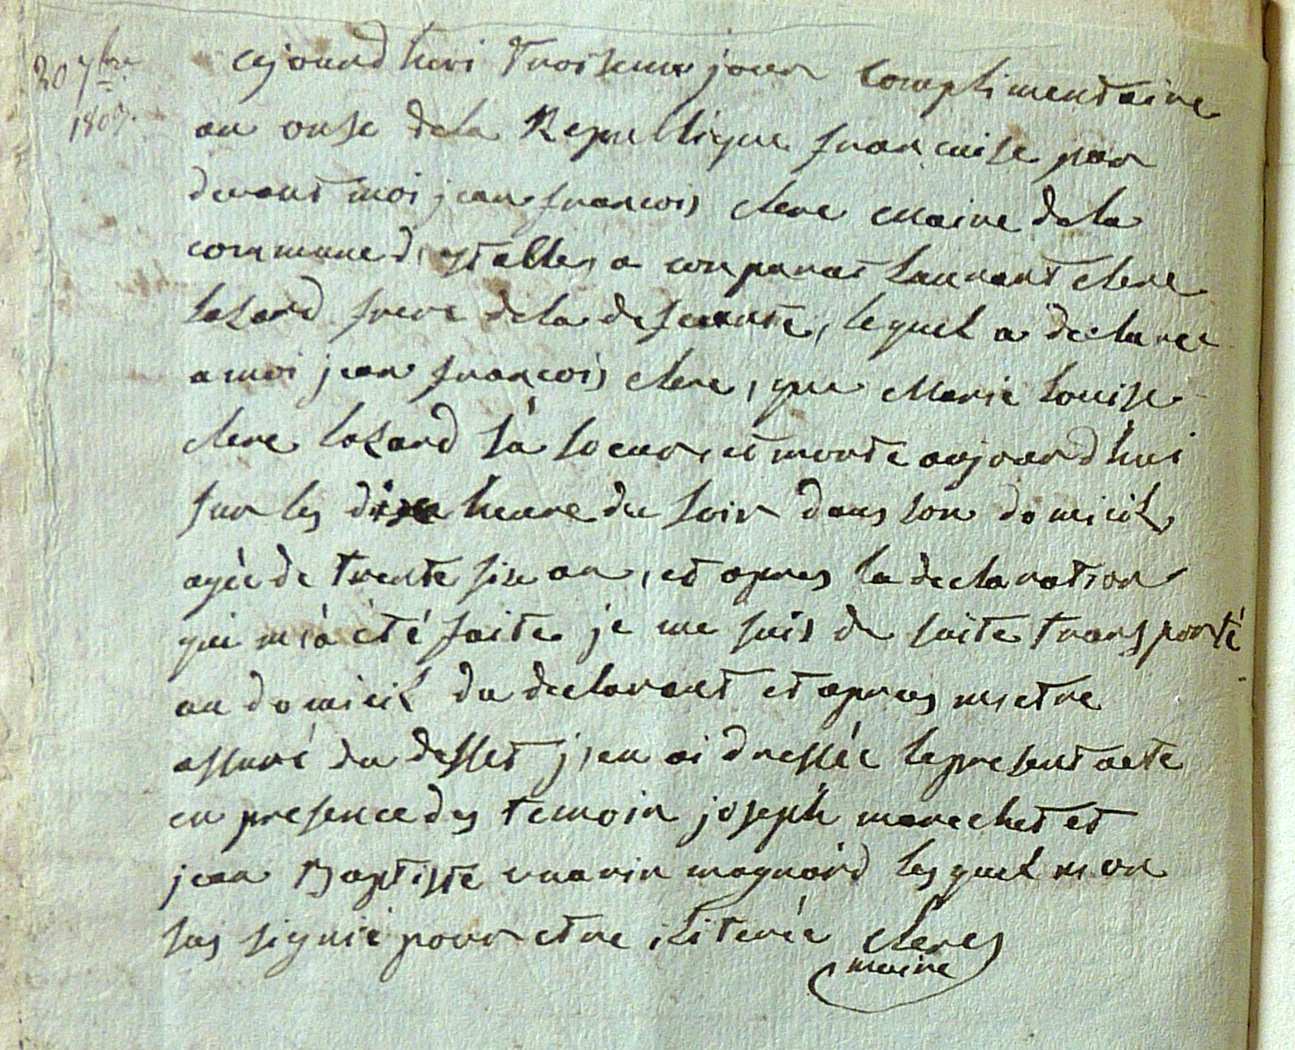 20 7bre
180
aujourd'huri troiseme jour complimentaire
an onse dela Republique francaise par
devant moi jean francois clerc Maire dela
commune d'etables a comparut laurant clerc
lasard frere dela defeunte, lequel a declarer
a moi jean francois clerc, que Marie louise
clerc lasard sà soeur, et morte aujourd'hui
sur les dixe heure du soir dans son domicil,
agée de trente six an, et apres la declaration
qui m'a été faite je me suis de suite transporté
au domicil du declarant et apres metre
assuré du desset j'en ai dressée le present acte
en presence des temoin joseph marechet et
jean Baptiste magnard les quel non
sus signié pour etre iliterée clerc
maire